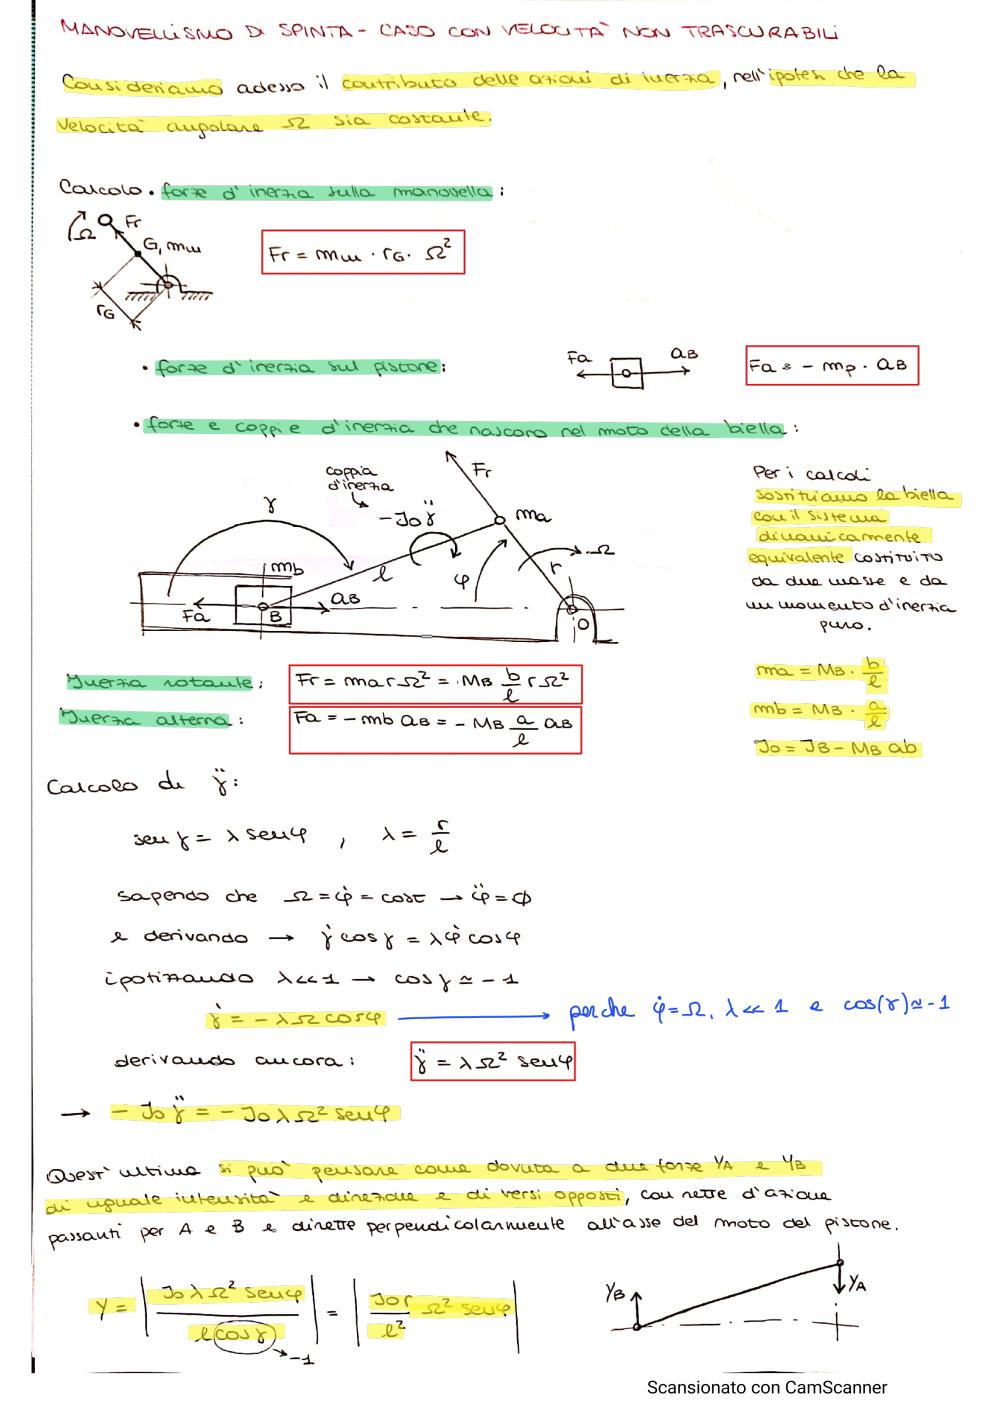 MANOVELLISMO DI SPINTA - CASO CON VELOCITA' NON TRASCURABILI
Consideriamo adesso il contributo delle azioni di inerzia, nell'ipotesi che la
velocità angolare Ω sia costante.
Calcolo • forze d'inerzia sulla manovella:
Ω Fr
G, mm
rG
Fr = mm · rG · Ω²
• forze d'inerzia sul pistone:
Fa aB
Fa = - mp · aB
• forze e coppie d'inerzia che nascono nel moto della biella:
coppia
d'inerzia
Fr
γ
-Jo γ̈
ma
Ω
mb
l
φ
r
aB
Fa
B
O
Per i calcoli
sostituiamo la biella
con il sistema
dinamicamente
equivalente costituito
da due masse e da
un momento d'inerzia
puro.
ma = MB · b/l
mb = MB · a/l
Jo = JB - MB ab
Inerzia rotante: Fr = ma r Ω² = MB b/l r Ω²
Inerzia alterna: Fa = - mb aB = - MB a/l aB
Calcolo di γ̈:
sen γ = λ sen φ , λ = r/l
sapendo che Ω = φ̇ = cost → φ̈ = 0
e derivando → γ̇ cos γ = λ φ̇ cos φ
ipotizzando λ<<1 → cos γ ≃ -1
γ̇ = - λ Ω cos φ → perche φ̇ = Ω, λ << 1 e cos(γ) ≃ -1
derivando ancora: γ̈ = λ Ω² sen φ
→ - Jo γ̈ = - Jo λ Ω² sen φ
Quest'ultima si può pensare come dovuta a due forze YA e YB
di uguale intensità e direzione e di versi opposti, con rette d'azione
passanti per A e B e dirette perpendicolarmente all'asse del moto del pistone.
Y = | Jo λ Ω² sen φ / l cos γ | = | Jo r / l² Ω² sen φ |
→ -1
YB
YA
Scansionato con CamScanner